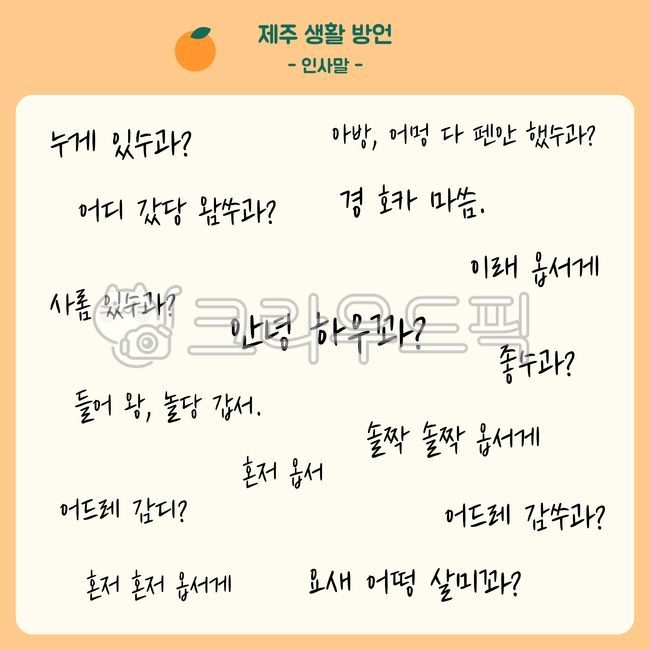 제주 생활 방언
- 인사말 -
누게 있수과?
아방, 어멍 다 펜안 했수과?
어디 갔당 왐쑤과?
경 호카 마씀.
이래 옵서게
사롬 있수과?
크라우드픽
안녕 하우꽈?
좋수과?
들어 왕, 놀당 갑서.
솔짝 솔짝 옵서게
혼저 옵서
어드레 감디?
어드레 감쑤과?
혼저 혼저 옵서게
요새 어떵 살미꽈?